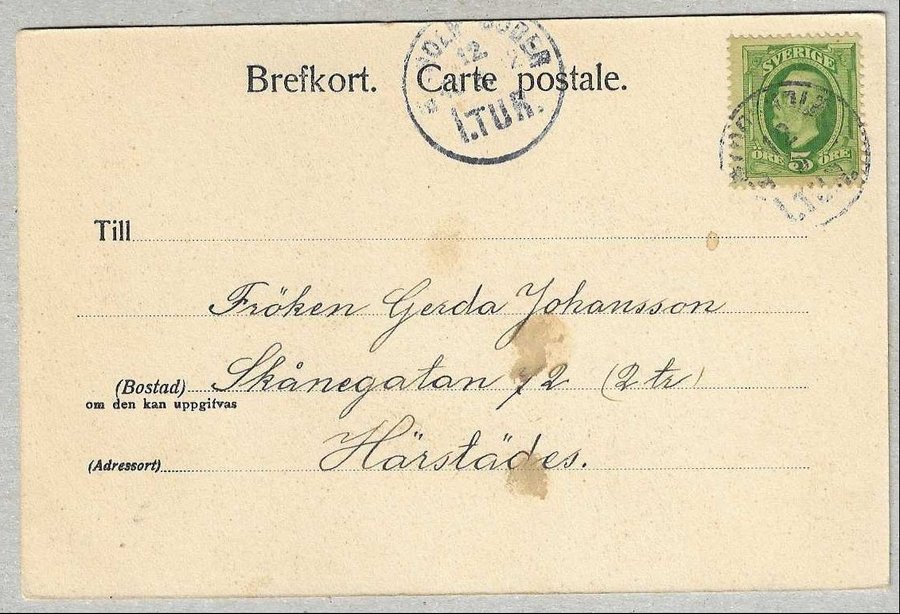 Brefkort. Carte postale.
SÖDER
12
1.TUR.
SVERIGE
ÖRE 5 ÖRE
Till
Fröken Gerda Johansson
(Bostad) Skånegatan 72 (2 tr)
om den kan uppgifvas
(Adressort) Härstädes.